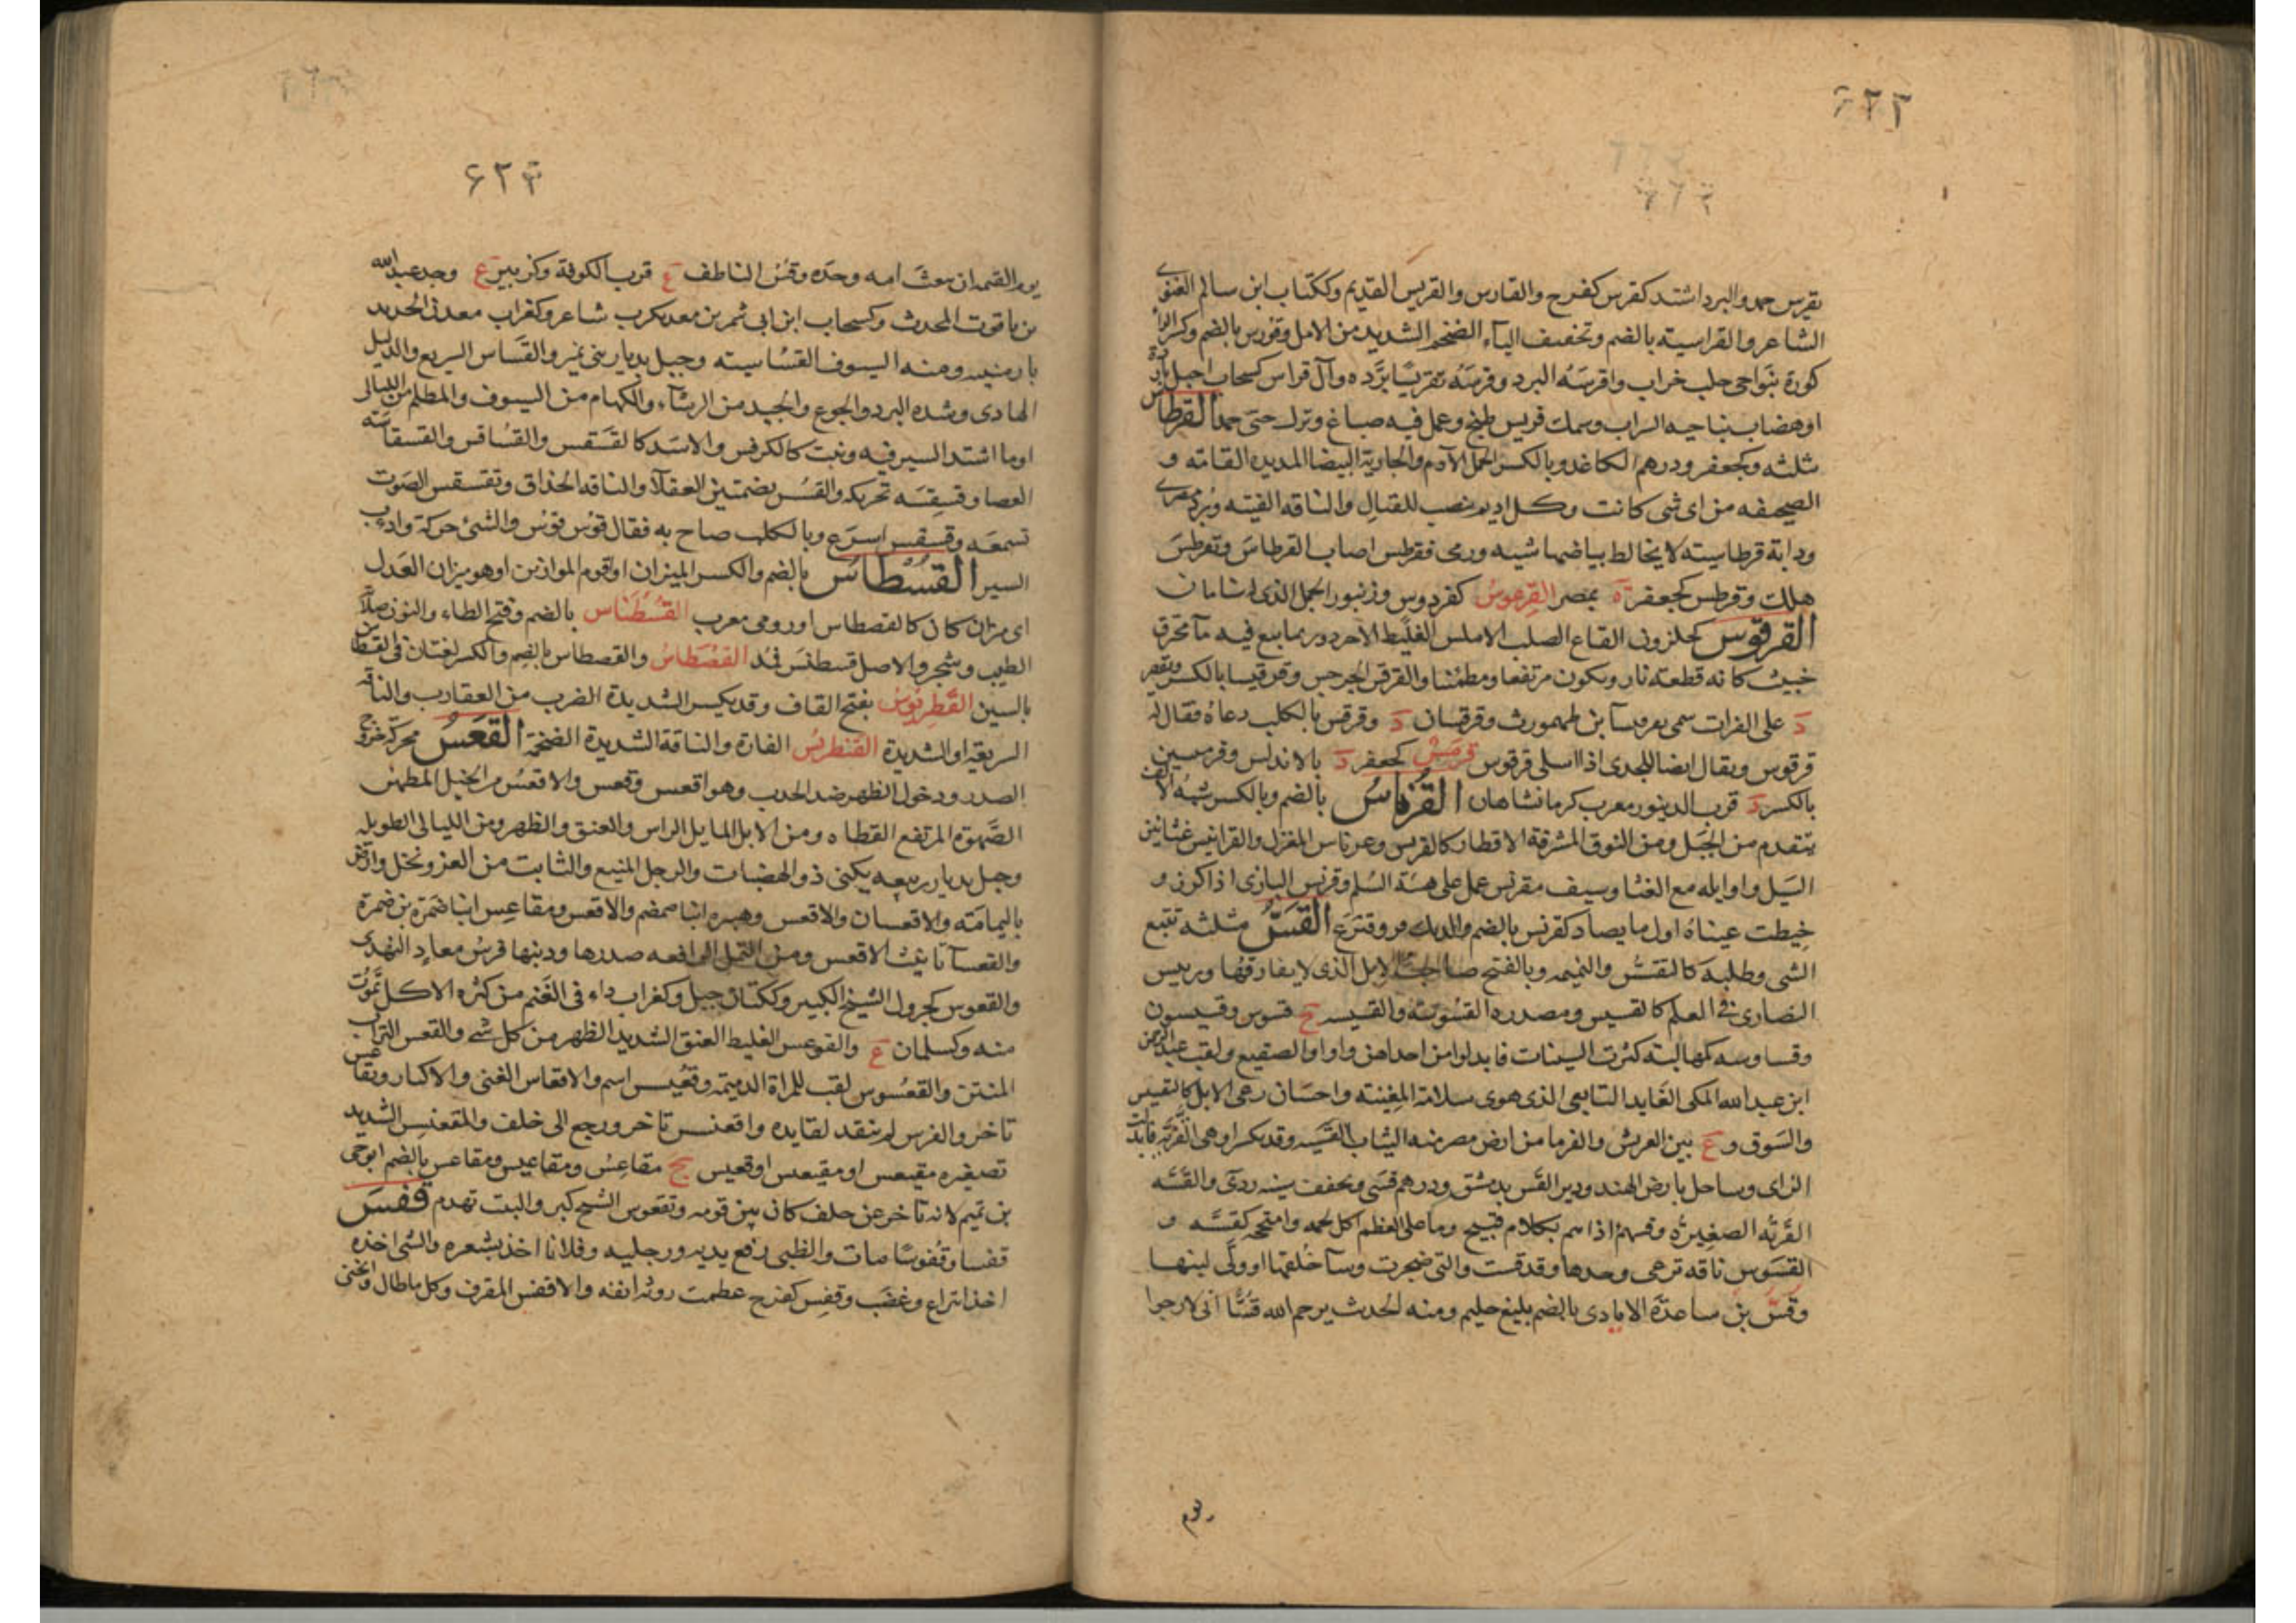 ٦٢٢
يقرس جمد والبرد اشتد كقرس كفرح والقارس والقريس القديم وككتاب ابن سالم الغنوى
الشاعر والقراسيته بالضم وتخفيف الياء الضخم الشديد من الابل وقورس بالضم وكسر الراء
كورة بنواحى حلب خراب واقرسه البرد وقرسه تقريسا برّده وآل قراس كسحاب اجبل باردة
او هضاب بناحيه السراب وسمك قريس طبخ وعمل فيه صباغ وترك حتى جمد القرطاس
مثلثه وكجعفر ودرهم الكاغد وبالكسر الجمل الآدم والجارية البيضا المديده القامته و
الصحيفه من اى شى كانت وكل اديم ينصب للنضال والناقه الفتيه وبُرد مصرى
ودابة قرطاسيته لا يخالط بياضها شيه ورمى فقرطس اصاب القرطاس وتقرطس
هلك وقرطس كجعفر ة بمصر القرعوس كفردوس وزنبور الجمل الذى له سنامان
القرقوس كحلزون القاع الصلب الاملس الغليظ الاجرد وربما نبع فيه ماء محترق
خبيث كانه قطعته نار ويكون مرتفعا ومطمئنا والقرقس الجرجس وقرقيسا بالكسر ويقصر
د على الفرات سمى بقرقيسا بن طهمورث وقرقسان د وقرقس بالكلب دعاه فقال له
قرقوس ويقال ايضا للجدى اذا اشلى قرقوس قرمس كجعفر د بالاندلس وقرميسين
بالكسر د قرب الدينور معرب كرمانشاهان القرناس بالضم وبالكسر شبه الانف
يتقدم من الجبل ومن النوق المشرفة الاقطار كالقرنس وعرناس المغزل والقرانيس عثانين
السيل واوايله مع الغثا وسيف مقرنس عمل على هيئة السلم وقرنس البازى اذا كرز و
خيطت عيناه اول ما يصاد كقرنس بالضم والديك فر وقنزع القسّ مثلثه تتبع
الشى وطلبه كالتقسّس والنميمه وبالفتح صاحب الابل الذى لا يفارقها ورييس
النصارى فى العلم كالقسيس ومصدره القسوسة والقسيسه ج قسوس وقسيسون
وقساوسه كمهالبته كثرت السينات فابدلوا من احداهن واوا والصقيع ولقب عبد الرحمن
ابن عبد الله المكى العابد التابعى الذى هوى سلامة المغنيته واحسان رعى الابل كالتقسيس
والسوق و ع بين العريش والفرما من ارض مصر منه الثياب القسيه وقد يكسر او هى القزيه فابدلت
الزاى وساحل بارض الهند ودير القس بدمشق ودرهم قسى وتخفف سينه ردى والقسه
القربه الصغيره وقسهم اذاهم بكلام قبيح وما على العظم اكل لحمه وامتخه كقسسه و
القسوس ناقه ترعى وحدها وقد قست والتى ضجرت وسآ خلقها او ولى لبنها
وقسّ بن ساعدة الايادى بالضم بليغ حليم ومنه الحديث يرحم الله قسا انى لارجوا
يوم
٦٢٣
يوم القيمه ان يبعث امه وحده وقس الناطف ع قرب الكوفة وكزبير ع وجد عبد الله
بن ياقوت المحدث وكسحاب ابن ابى شمر بن معديكرب شاعر وكغراب معدن الحديد
بارمنيه ومنه السيوف القساسيته وجبل بديار بنى نمير والقسّاس السريع والدليل
الهادى وشده البرد والجوع والجيد من الرشاء والكهام من السيوف والمظلم من الليالى
او ما اشتد السير فيه ونبت كالكرفس والاسد كالقسقس والقساقس والقسقاسه
العصا وقسقسه تحريكه والقسس بضمتين العقلاء والناقه الحذاق وتقسقس الصوت
تسمعه وقسقس اسرع وبالكلب صاح به فقال قوس قوس والشىء حركة واداب
السير القسطاس بالضم والكسر الميزان او اقوم الموازين او هو ميزان العدل
اى ميزان كان كالقصطاس او رومى معرب القسطناس بالضم وفتح الطاء والنون صلاية
الطيب وشجر والاصل قسطنس فمُد القصطاس والقصطاس بالضم والكسر لغتان فى القسطاس
بالسين القطربوس بفتح القاف وقد يكسر الشديدة الضرب من العقارب والناقه
السريعة او الشديدة القنطريس الفارة والناقة الشديدة الضخمة القعس محركة خروج
الصدر ودخول الظهر ضد الحدب وهو اقعس وقعس والاقعس من الخيل المطمئن
الصهوة المرتفع القطاه ومن الابل المايل الراس والعنق والظهر ومن الليالى الطويله
وجبل بديار ربيعه يكنى ذو الهضبات والرجل المنيع والثابت من العز ونخل وارض
باليمامته والاقعسان والاقعس وهبيره ابنا ضمضم والاقعس ومقاعس ابنا ضمرة بن ضمرة
والقعسآ تانيث الاقعس ومن النمل الرافعه صدرها وذنبها فرس معاذ النهدى
والقعوس كجرول الشيخ الكبير وككتان جبل وكغراب داء فى الغنم من كثره الاكل تموت
منه وكسلمان ع والقوعس الغليظ العنق الشديد الظهر من كل شى والقعس التراب
المنتن والقعسوس لقب للمراة الدميمة وقعيس اسم والاقعاس الغنى والاكثار وتقاعس
تاخر والفرس لم ينقد لقايده واقعنسس تاخر ورجع الى خلف والمقعنسس الشديد
تصغيره مقيعس او مقيعيس او قعيس ج مقاعس ومقاعيس ومقاعس بالضم ابو حى
بن تميم لانه تاخر عن حلف كان بين قومه وتقعوس الشيخ كبر والبيت تهدم قفس
قفسا وقفوسا مات والظبى رفع يديه ورجليه وفلانا اخذ بشعره والشى اخذه
اخذ انتزاع وغضب وقفس كفرح عظمت روثه انفه والاقفس المقرف وكل ما طال وانحنى